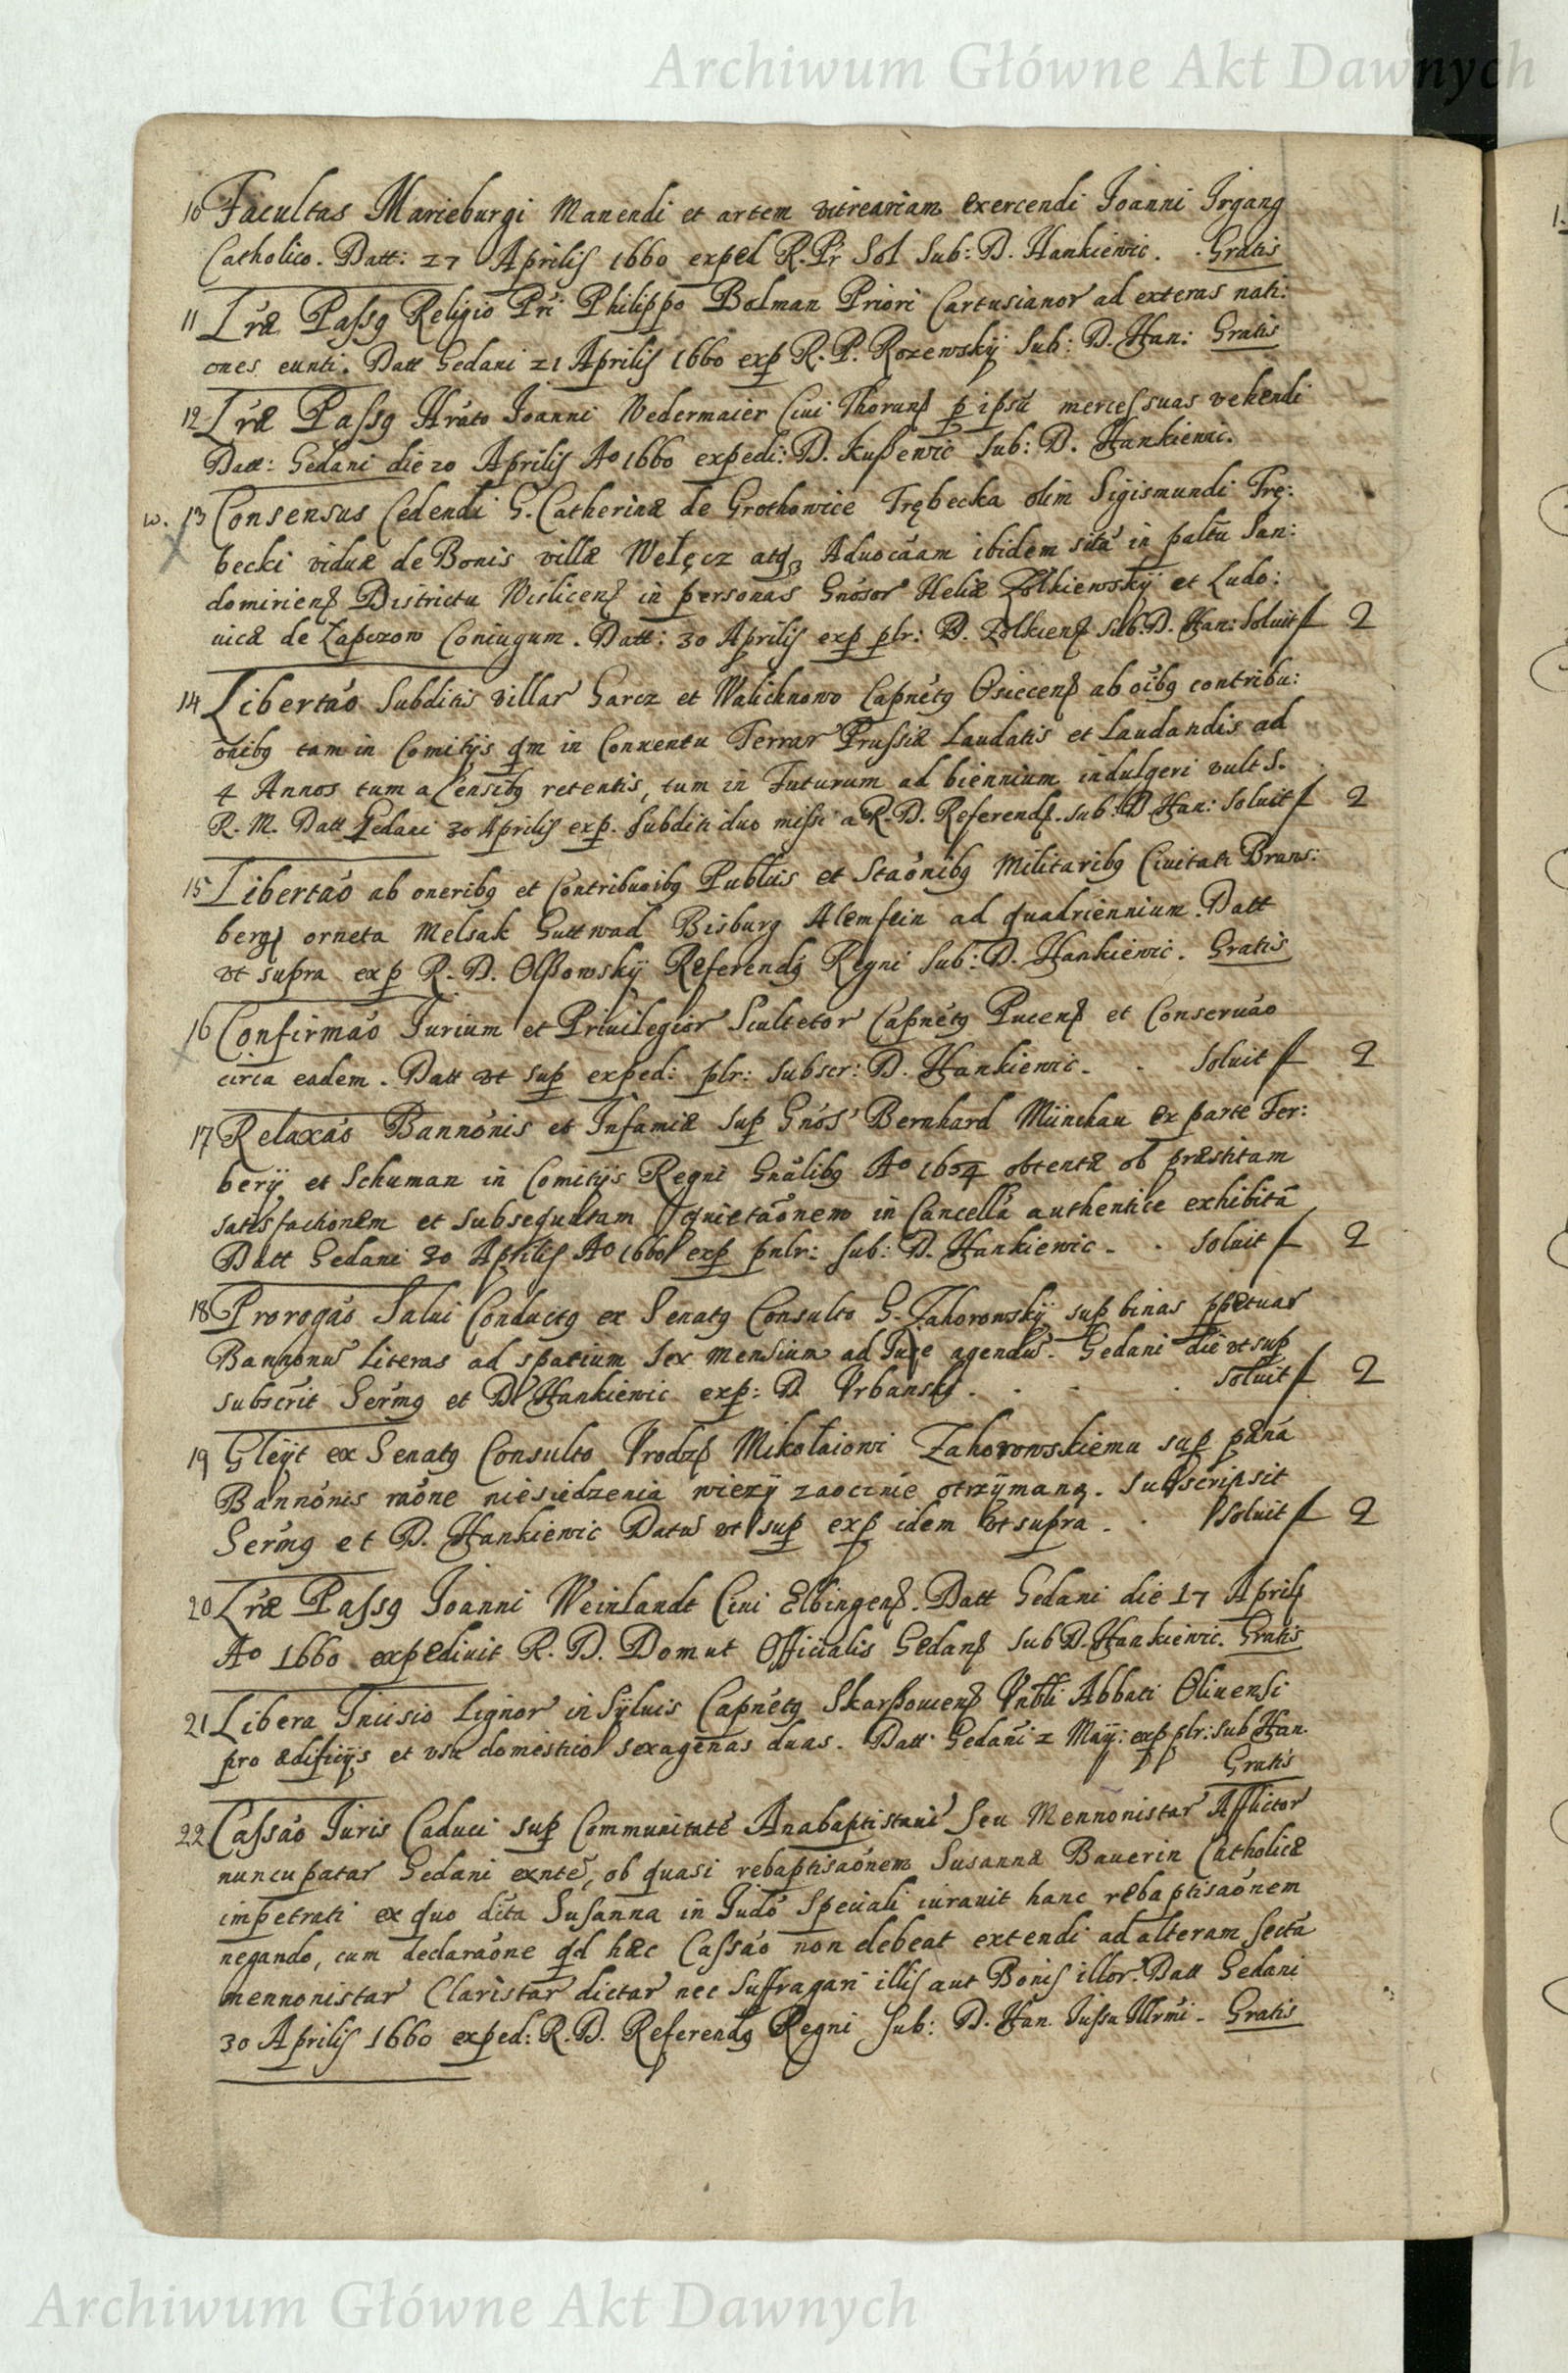 Archiwum Główne Akt Dawnych
10 Facultas Marieburgi Manendi et artem vitreariam exercendi Joanni Jrgang
Catholico. Datt: 27 Aprilis 1660 exped R. Pr Sol Sub: D. Hankiewic. Gratis
11 Lræ Passg Religio Pri Philippo Bolman Priori Cartusianor ad exteras nati:
ones eunti. Datt Gedani 21 Aprilis 1660 exp R. P. Rozewskÿ Sub: D. Han: Gratis
12 Lræ Passg Joanni Wedermaier Ciui Thorunß p ipsū merces suas vehendi
Datt: Gedani die 20 Aprilis Ao 1660 expedi: D. Kußewic Sub: D. Hankiewic.
w. 13 Consensus Cedendi G. Catherinæ de Grothowice Trębecka olim Sigismundi Trę:
becki viduæ de Bonis villæ Wełęcz atq3 Aduocāam ibidem sitā in paltū San:
domirienß Districtu Wislicenß in personas Gnosor Heliæ Żołkiewskÿ et Ludo:
uicæ de Łapczow Coniugum. Datt: 30 Aprilis exp plr: D. Zolkienß Sub: D. Han: Soluit f 2
14 Libertāo Subditis villar Garcz et Walichnowo Capnētg Osiecenß ab oībg contribu:
onibg tam in Comitÿs qm in Conuentu Terrar Prussiæ Laudatis et Laudandis ad
4 Annos tum a Censibg retentis, tum in Futurum ad biennium indulgeri vult S.
R. M. Datt Gedani 30 Aprilis exp. Subditi duo missi a R. D. Referendß. sub: D Han: Soluit f 2
15 Libertāo ab oneribg et Contribuoibg Publuis et Staōnibg Militaribg Ciuitati Brans:
berg orneta Melsak Guttwad Bisburg Alemstein ad quadriennium. Datt
vt supra exp R. D. Olßowskÿ Referendg Regni Sub: D. Hankiewic. Gratis
16 Confirmāo Jurium et Priuilegior Scultetor Capnētg Pucenß et Conseruāo
circa eadem. Datt vt sup exped: plr: subscr: D. Hankiewic. Soluit f 2
17 Relaxāo Bannōnis et Infamiæ Sup Gnos Bernhard Münchau ex parte Fer:
berÿ et Schuman in Comitÿs Regni Gnālibg Ao 1654 obtentæ ob præstitam
satisfactionem et subsequutam quietaōnem in Cancellā authentice exhibitā
Datt Gedani 30 Aprilis Ao 1660 exp pnlr: sub: D. Hankiewic. Soluit f 2
18 Prorogāo Salui Conductg ex Senatg Consulto G. Zahorowskÿ sup binas ppetuar
Bannonū Literas ad spatium sex mensium ad Jure agendū. Gedani die vt sup
subscrit Sermg et D. Hankiewic exp: D. Vrbanskj. Soluit f 2
19 Gleÿt ex Senatg Consulto Vrodzß Mikołaiowi Zahorowskiemu sup pænā
Bannōnis raōne niesiedzenia wiezÿ zaocznie otrzÿmaną. Subscripsit
Sermg et D. Hankiewic Datū vt sup exp idem vt supra. Soluit f 2
20 Lræ Passg Joanni Weinlandt Ciui Elbingenß. Datt Gedani die 17 Aprils
Ao 1660 expediuit R. D. Domut Officialis Gedanß Sub D. Hankiewic. Gratis
21 Libera Incisio Lignor in Sÿluis Capnētg Skarßowienß Vnbli Abbati Oliuensi
pro ædificÿs et vsu domestico sexagenas duas. Datt Gedani 2 Maÿ: exp plr: sub Han.
Gratis
22 Cassāo Juris Caduci sup Communitatē Anabaptistarū Seu Mennonistar Afflictor
nuncupatar Gedani exntē, ob quasi rebaptisaōnem Susannæ Bauerin Catholicæ
impetrati ex quo dīta Susanna in Judō Speciali iurauit hanc rebaptisaōnem
negando, cum declaraōne qd hæc Cassāo non debeat extendi ad alteram sectā
mennonistar Claristar dictar nec suffragari illis aut Bonis illor. Datt Gedani
30 Aprilis 1660 exped: R. D. Referendg Regni Sub: D. Han Jussu Illrmi. Gratis
Archiwum Główne Akt Dawnych